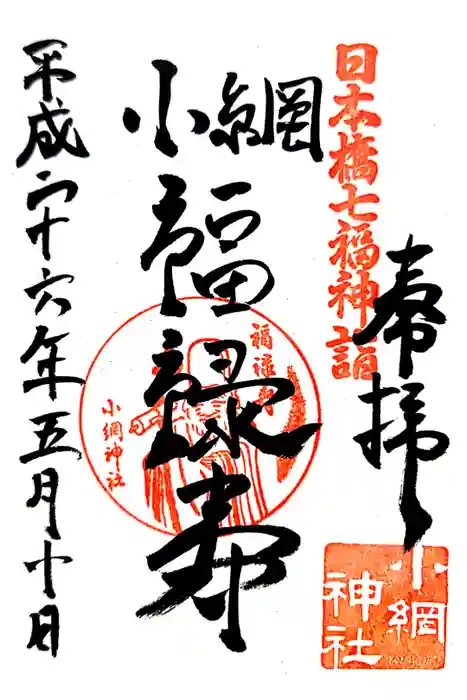 日本橋七福神詣
奉拝
小網神社
小網
福禄寿
福禄寿
小網神社
平成二十六年五月十日